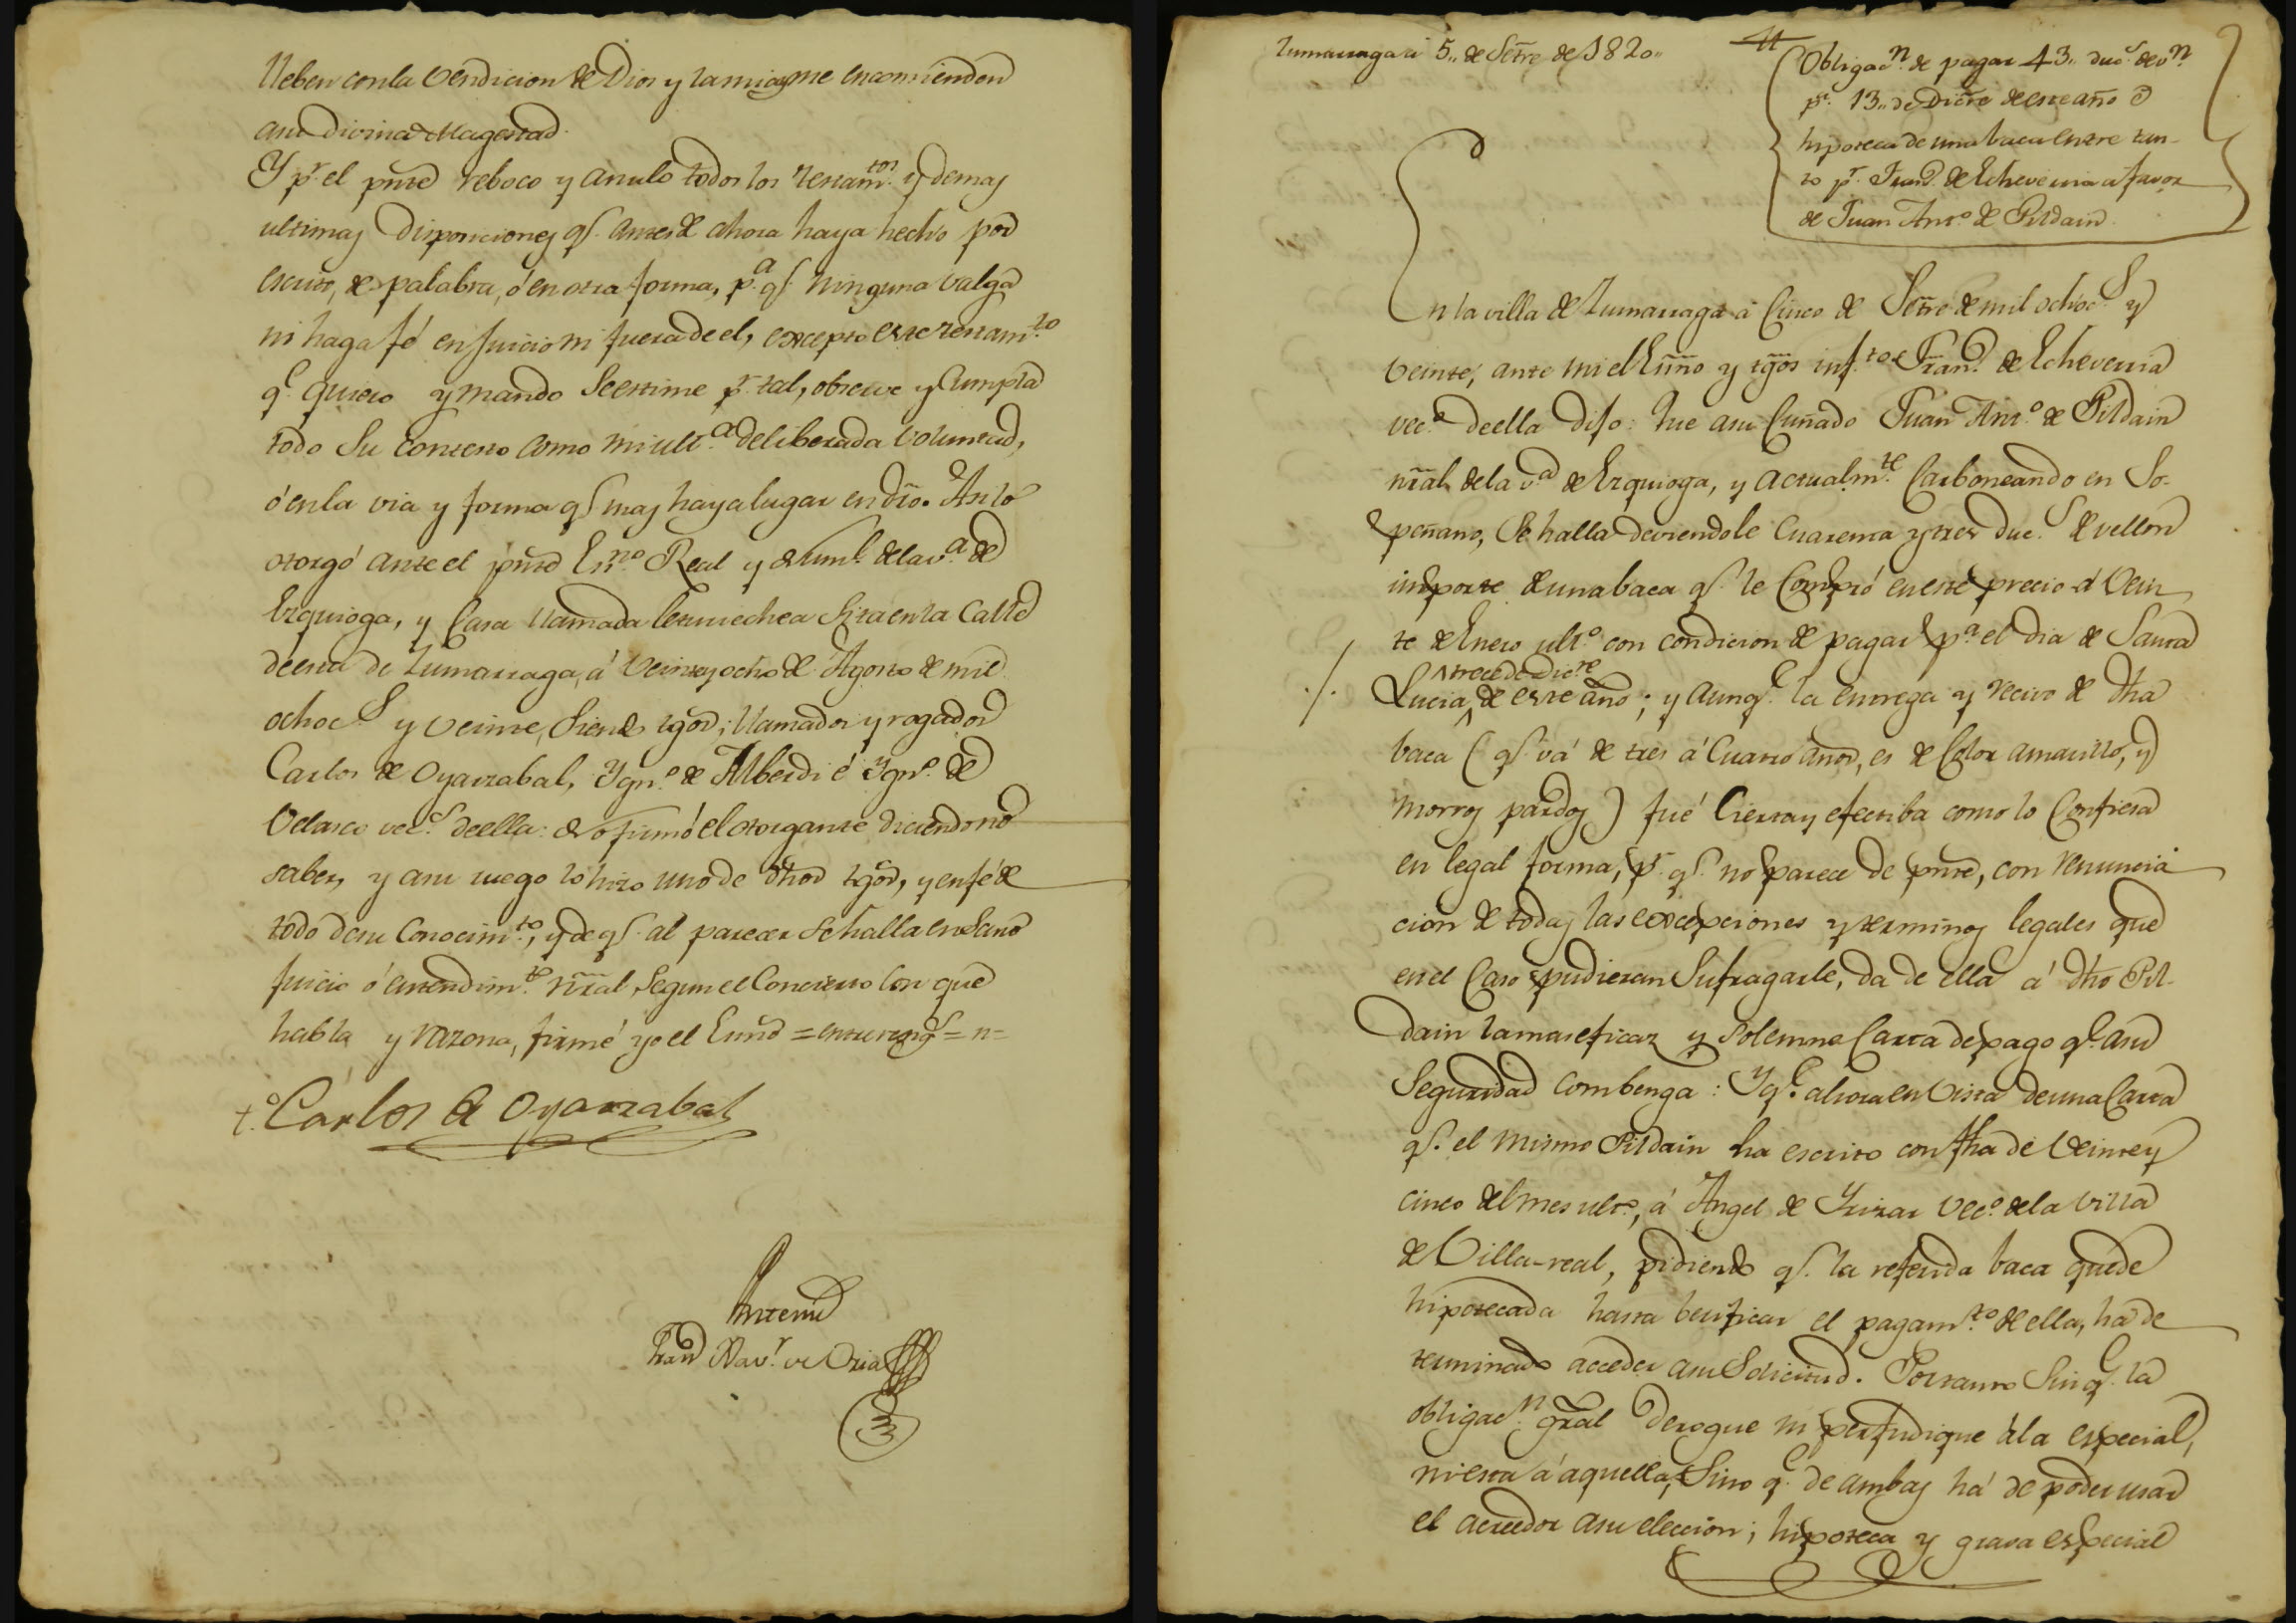 lleben con la vendicion de Dios y la mia y me encomienden
a su divina Magestad.
Y pr. el pnte reboco y anulo todos los testamtos. y demas
ultimas disposiciones q. antes de ahora haya hecho por
escrito, de palabra, ó en otra forma, pa. q. ninguna valga
ni haga fé en juicio ni fuera de el, excepto este testamto.
q. quiero y mando se estime pr. tal, observe y cumpla
todo su contesto como mi ulta. deliberada voluntad,
ó en la via y forma q. mas haya lugar en dro. Asi lo
otorgó ante el pnte Esno. Real y de Numo. de la va. de
Ezquioga, y Casa llamada sita en la Calle
de esta de Zumarraga, á veinte y ocho de Agosto de mil
ochocs. y veinte, siendo tgos, llamados y rogados
Carlos de Oyarzabal, Ygno. de Alberdi é Ygno. de
Velasco vecs. de ella: no firmó el otorgante diciendo no
saber, y a su ruego lo hizo uno de dhos tgos, y en fé de
todo de su conocimto., y de q. al parecer se halla en sano
juicio ó entendimte. nral segun el concierto con que
habla y razona, firmé yo el Esno = = n =
to. Carlos de Oyarzabal
Ante mi
Frano. Xavr. de Oria
Zumarraga á 5,, de Setre de 1820,,
Obligacn. de pagar 43,, ducs. de vn.
pa. 13,, de Dicre de este año é
hipoteca de una baca entre tan-
to pr. Frano. de Echeverria a favor
de Juan Anto. de Pildain.
En la villa de Zumarraga á Cinco de Setre de mil ochocs. y
veinte, ante mi el Esno y tgos inftos. Frano. de Echeverria
veco. de ella dijo: Que a su Cuñado Juan Anto. de Pildain
nral de la va. de Ezquioga, y actualmte. Carboneando en So-
peñano, se halla deviendole Cuarenta y tres ducs. de vellon
importe de una baca q. le Compró en este precio á Vein-
te de Enero ulto. con condicion de pagar pa. el dia de Santa
trece de Dicre
./. Lucia, de este año; y aunq. la entrega y recivo de dha
baca (q. vá de tres á Cuatro años, es de Color amarillo, y
morros pardos) fué Cierta y efectiba como lo Confiesa
en legal forma, pr. q. no parece de pnte, con renuncia-
cion de todas las excepciones y terminos legales que
en el Caso pudieran Sufragarle, da de ella á dho Pil-
dain la mas eficaz y solemne Carta de pago q. a su
Seguridad combenga: Y q. ahora en vista de una Carta
q. el mismo Pildain ha escrito con fha de Veinte y
cinco del mes ulto., á Angel de Yrizar Veco. de la Villa
de Villa-real, pidiendo q. la referida baca quede
hipotecada hasta berificar el pagamto. de ella, ha de-
terminado acceder a su Solicitud. Por tanto sin q. la
obligacn. gral derogue ni perjudique á la especial,
ni esta á aquella, Sino q. de ambas há de poder usar
el acreedor a su eleccion; hipoteca y grava especial